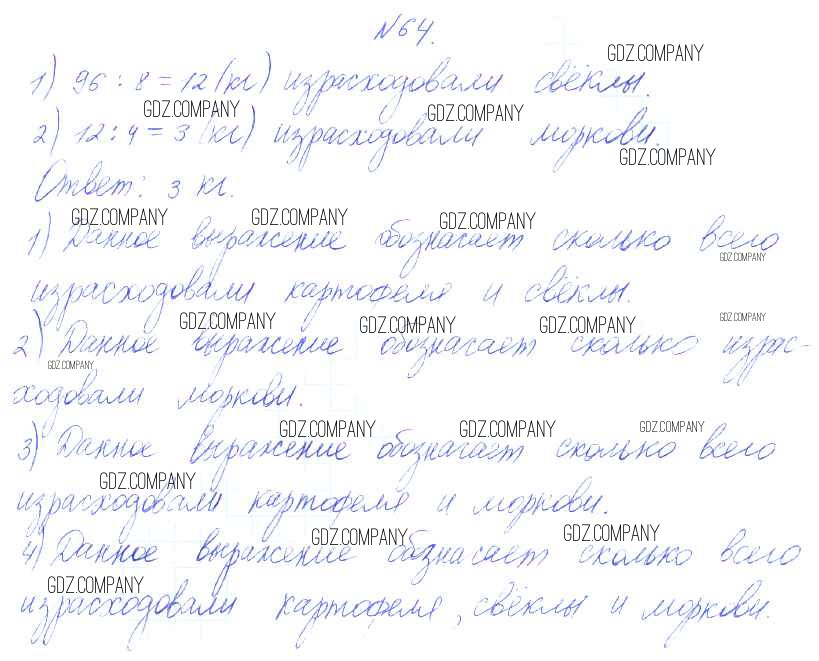 №64.
GDZ.COMPANY
1) 96 : 8 = 12 (кг) израсходовали свёклы.
GDZ.COMPANY GDZ.COMPANY
2) 12 : 4 = 3 (кг) израсходовали моркови.
GDZ.COMPANY
Ответ: 3 кг.
GDZ.COMPANY GDZ.COMPANY GDZ.COMPANY
1) Данное выражение обозначает сколько всего
GDZ.COMPANY
израсходовали картофеля и свёклы.
GDZ.COMPANY GDZ.COMPANY GDZ.COMPANY GDZ.COMPANY
2) Данное выражение обозначает сколько израс-
GDZ.COMPANY
ходовали моркови.
GDZ.COMPANY GDZ.COMPANY GDZ.COMPANY
3) Данное выражение обозначает сколько всего
GDZ.COMPANY
израсходовали картофеля и моркови.
GDZ.COMPANY GDZ.COMPANY
4) Данное выражение обозначает сколько всего
GDZ.COMPANY
израсходовали картофеля, свёклы и моркови.